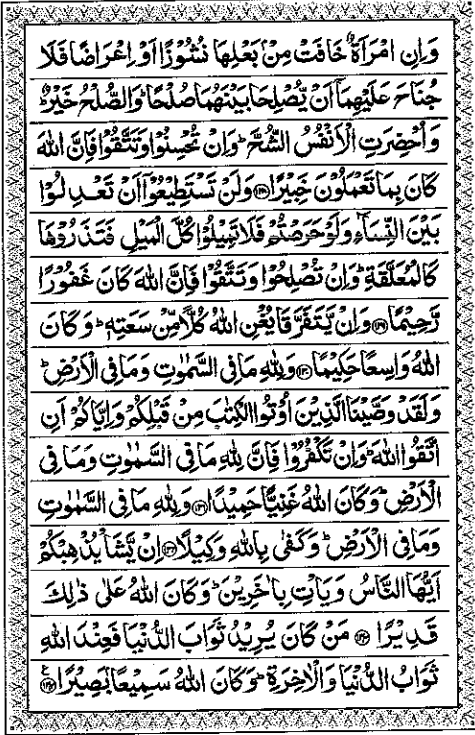 وَاِنِ امْرَاَةٌ خَافَتْ مِنْۢ بَعْلِهَا نُشُوْزًا اَوْ اِعْرَاضًا فَلَا
جُنَاحَ عَلَيْهِمَاۤ اَنْ يُّصْلِحَا بَيْنَهُمَا صُلْحًا ؕ وَالصُّلْحُ خَيْرٌ ؕ
وَاُحْضِرَتِ الْاَنْفُسُ الشُّحَّ ؕ وَاِنْ تُحْسِنُوْا وَتَتَّقُوْا فَاِنَّ اللّٰهَ
كَانَ بِمَا تَعْمَلُوْنَ خَبِيْرًا ﴿۱۲۸﴾ وَلَنْ تَسْتَطِيْعُوْۤا اَنْ تَعْدِلُوْا
بَيْنَ النِّسَآءِ وَلَوْ حَرَصْتُمْ فَلَا تَمِيْلُوْا كُلَّ الْمَيْلِ فَتَذَرُوْهَا
كَالْمُعَلَّقَةِ ؕ وَاِنْ تُصْلِحُوْا وَتَتَّقُوْا فَاِنَّ اللّٰهَ كَانَ غَفُوْرًا
رَّحِيْمًا ﴿۱۲۹﴾ وَاِنْ يَّتَفَرَّقَا يُغْنِ اللّٰهُ كُلًّا مِّنْ سَعَتِهٖ ؕ وَكَانَ
اللّٰهُ وَاسِعًا حَكِيْمًا ﴿۱۳۰﴾ وَلِلّٰهِ مَا فِى السَّمٰوٰتِ وَمَا فِى الْاَرْضِ ؕ
وَلَقَدْ وَصَّيْنَا الَّذِيْنَ اُوْتُوا الْكِتٰبَ مِنْ قَبْلِكُمْ وَاِيَّاكُمْ اَنِ
اتَّقُوا اللّٰهَ ؕ وَاِنْ تَكْفُرُوْا فَاِنَّ لِلّٰهِ مَا فِى السَّمٰوٰتِ وَمَا فِى
الْاَرْضِ ؕ وَكَانَ اللّٰهُ غَنِيًّا حَمِيْدًا ﴿۱۳۱﴾ وَلِلّٰهِ مَا فِى السَّمٰوٰتِ
وَمَا فِى الْاَرْضِ ؕ وَكَفٰى بِاللّٰهِ وَكِيْلًا ﴿۱۳۲﴾ اِنْ يَّشَاْ يُذْهِبْكُمْ
اَيُّهَا النَّاسُ وَيَاْتِ بِاٰخَرِيْنَ ؕ وَكَانَ اللّٰهُ عَلٰى ذٰلِكَ
قَدِيْرًا ﴿۱۳۳﴾ مَنْ كَانَ يُرِيْدُ ثَوَابَ الدُّنْيَا فَعِنْدَ اللّٰهِ
ثَوَابُ الدُّنْيَا وَالْاٰخِرَةِ ؕ وَكَانَ اللّٰهُ سَمِيْعًۢا بَصِيْرًا ﴿۱۳۴﴾ ع